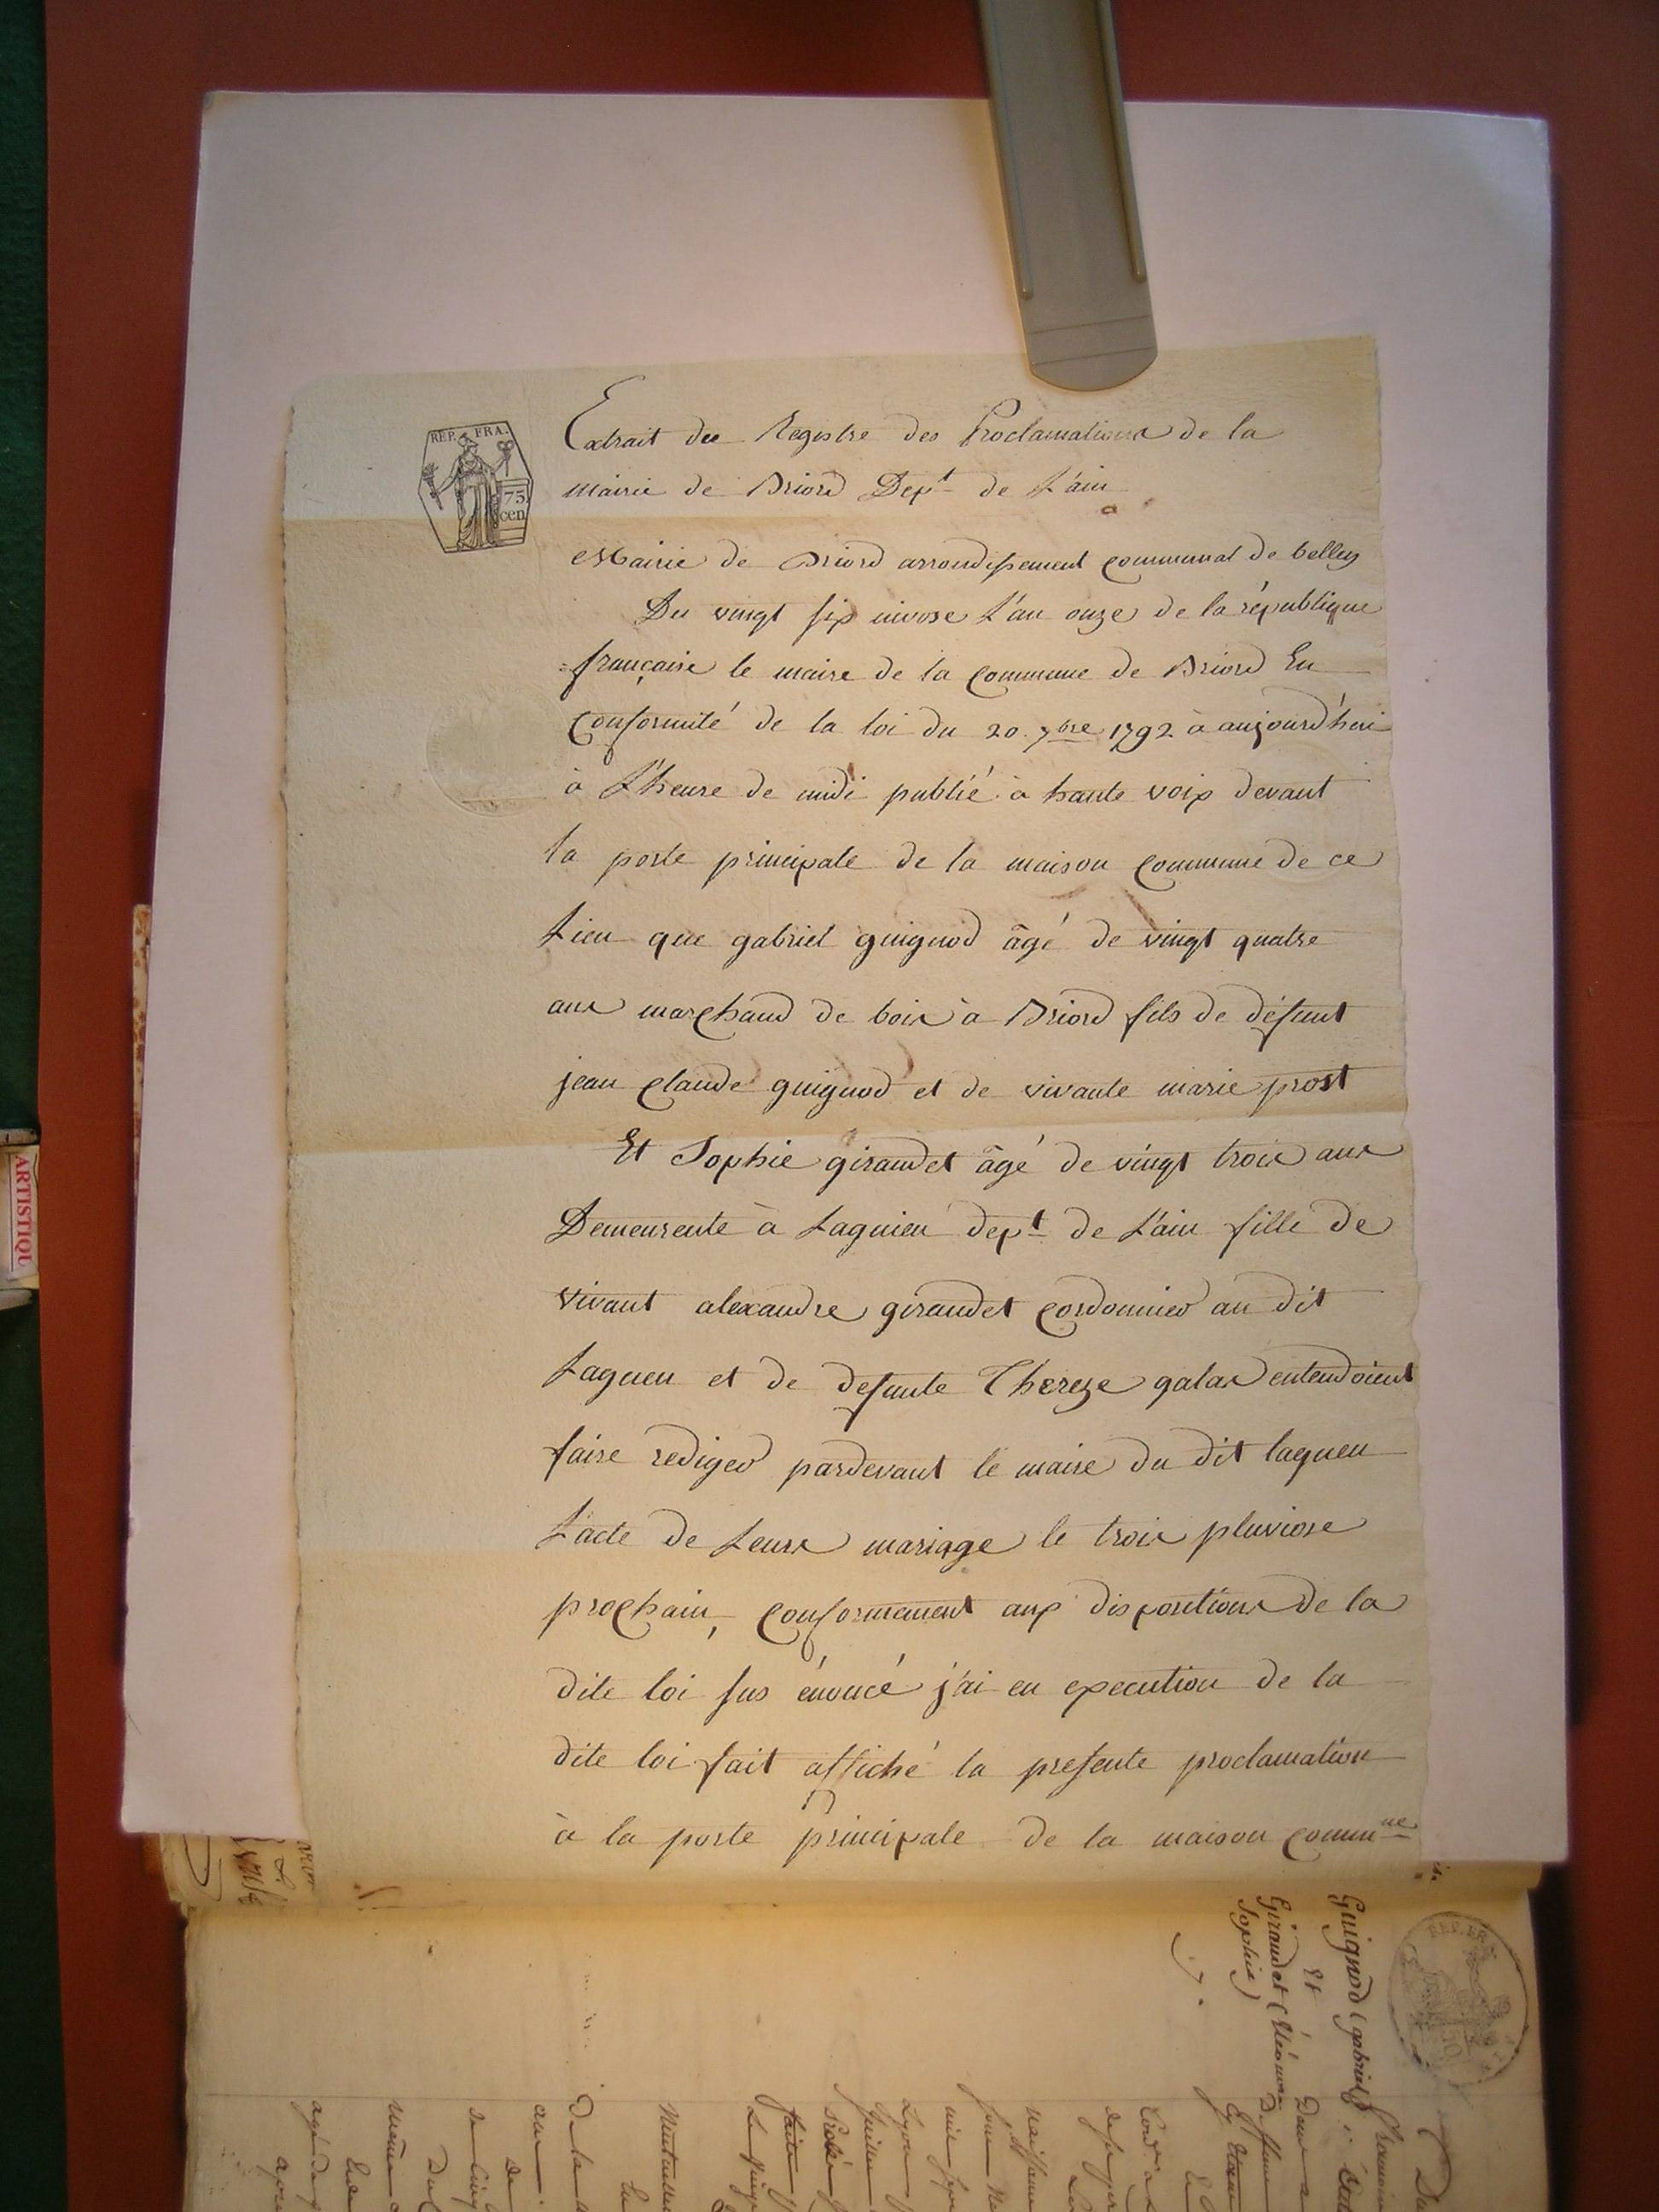 REP. FRA.
75
cen
Extrait du Registre des Proclamations de la
Mairie de Briord Dept de L'ain
Mairie de Briord arrondissement communal de belley
Du vingt six nivose L'an onze de la république
française le maire de la commune de Briord En
Conformité de la loi du 20. 7bre 1792 à aujourd'hui
à L'heure de midi publié à haute voix devant
la porte principale de la maison commune de ce
Lieu que gabriel guignod âgé de vingt quatre
ans marchand de bois à Briord fils de défunt
jean claude guignod et de vivante marie prost
Et Sophie giraudet âgé de vingt trois ans
Demeurente à Lagnieu dept de L'ain fille de
vivant alexandre giraudet cordonnier au dit
Lagneu et de defunte Thereze galas entendoient
faire rediger pardevant le maire du dit lagneu
L'acte de Leurs mariage le trois pluviose
prochain, conformement aux dispositions de la
dite loi sus énoncé j'ai en execution de la
dite loi fait affiché la presente proclamation
à la porte principale de la maison commne
ARTISTIQU
Guignod (gabriel)
Et
Giraudet (Eléonore
Sophie)